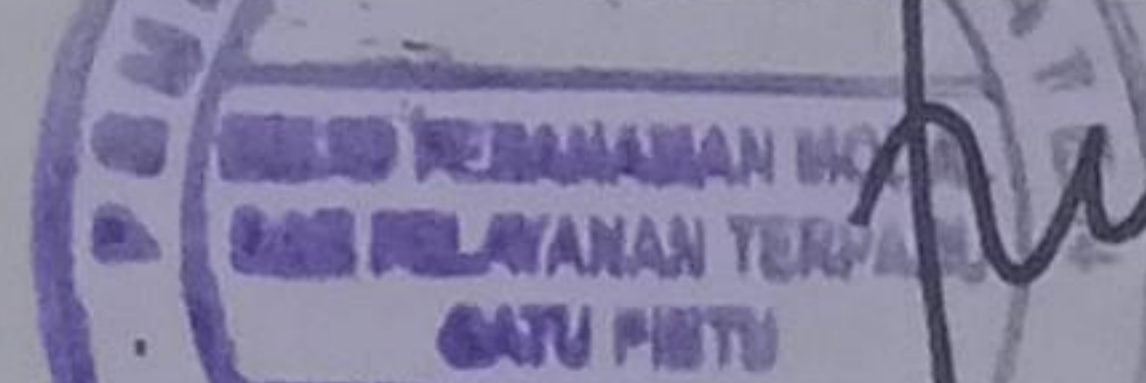 DINAS PENANAMAN MODAL
DAN PELAYANAN TERPADU
SATU PINTU